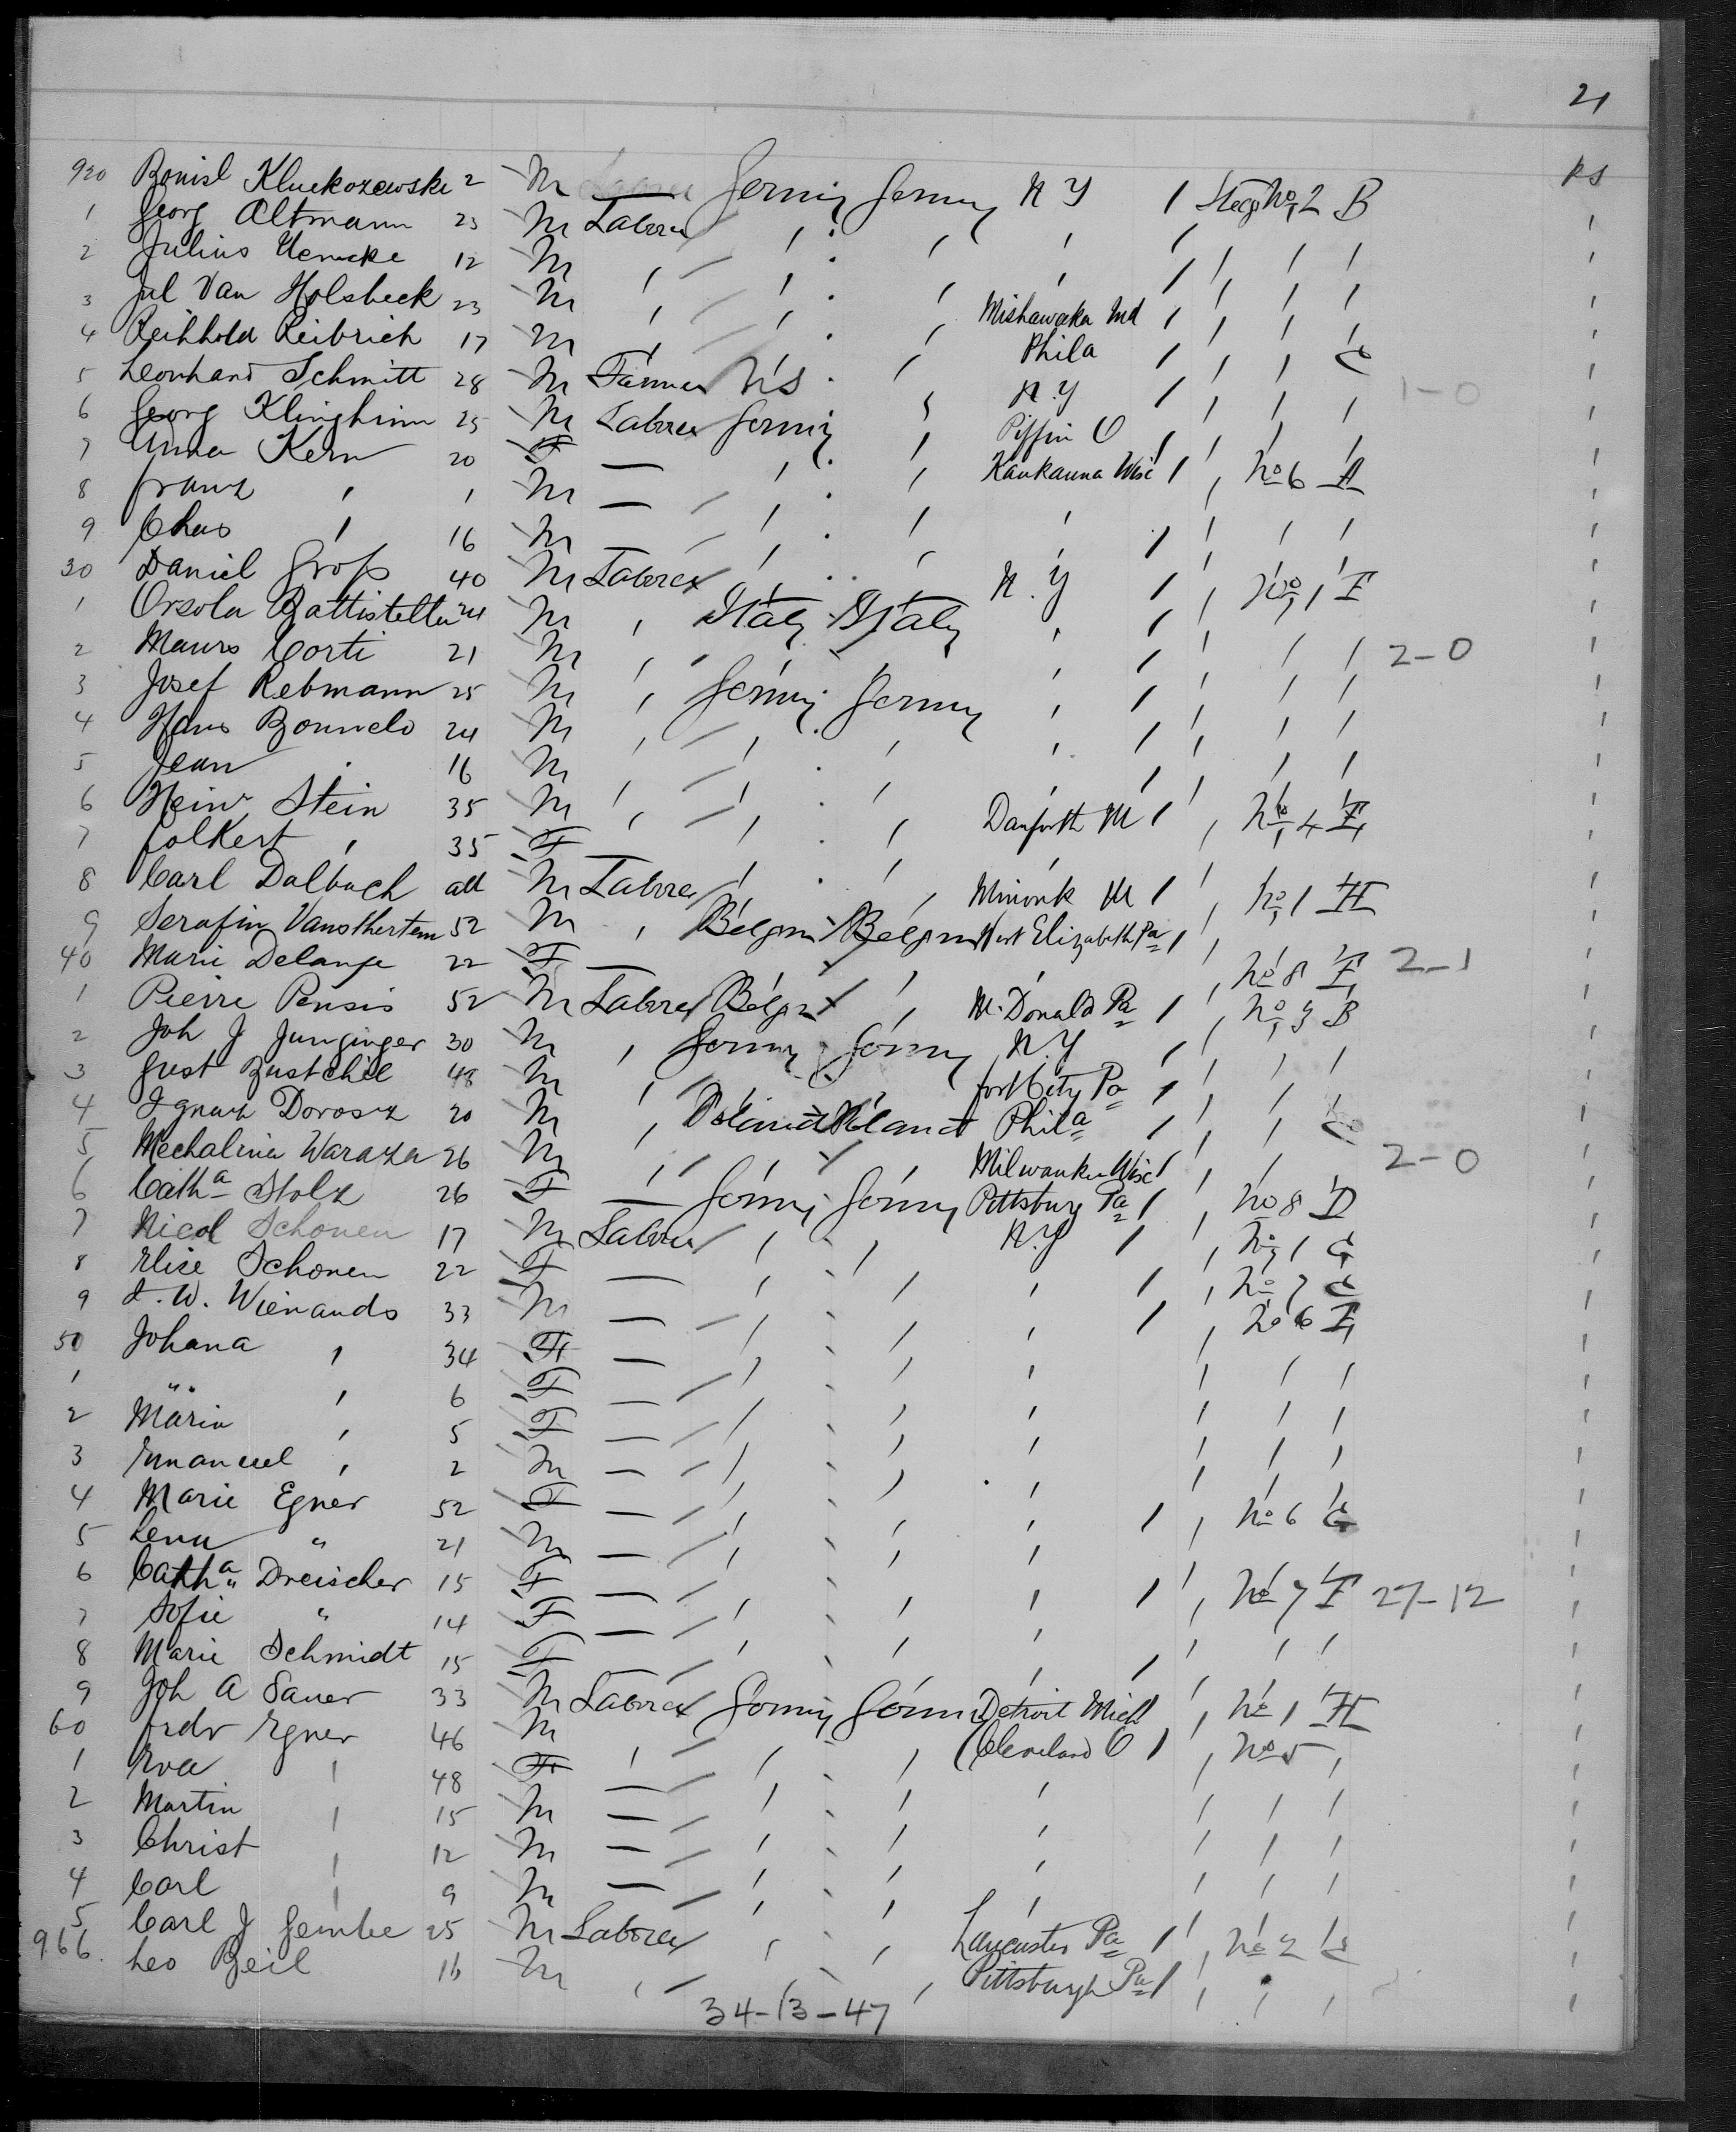 21
920 Bonisl Kluckozewske 2 M — Germy Germy N Y / Steg No 2 B P S
1 Georg Altmann 23 M Laborer ' ' ' / ' ' ' '
2 Julius 12 M ' ' ' ' / ' ' ' '
3 Jul Van Holsbeck 23 M ' ' ' Mishawaka Ind / ' ' ' '
4 Reihhold Reibrich 17 M ' ' ' Phila / ' ' C '
5 Leonhard Schmitt 28 M Farmer U S ' N.Y / ' ' ' 1-0 '
6 Georg Klinghirn 25 M Laborer Germy ' Piffin O / ' ' ' '
7 Anna Kern 20 F — ' ' Kaukauna Wisc / ' No 6 A '
8 Franz ' 1 M — ' ' ' ' ' ' '
9 Chas ' 16 M — ' ' ' / ' ' ' '
30 Daniel Gross 40 M Laborer ' ' N.Y / ' No 1 F '
1 Orsola Battistella 24 M ' Italy Italy ' / ' ' ' '
2 Mauro Corti 21 M ' ' ' ' / ' ' ' 2-0 '
3 Josef Rebmann 25 M ' Germy Germy ' / ' ' ' '
4 Hans 24 M ' ' ' ' / ' ' ' '
5 Jean ' 16 M ' ' ' ' / ' ' ' '
6 Heinr Stein 35 M ' ' ' Danforth Ill / ' No 4 F '
7 Folkert ' 35 F — ' ' ' ' ' ' '
8 Carl Dalbach all M Laborer ' ' Minonk Ill / ' No 1 H '
9 Serafin Vansthertem 52 M ' Belgm Belgm West Elizabeth Pa / ' ' ' '
40 Marie Delange 22 F — ' ' ' No 8 F 2-1 '
1 Pierre Pensis 52 M Laborer Belgm ' McDonald Pa / ' No 3 B '
2 Joh J Junginger 30 M ' Germy Germy N.Y / ' ' ' '
3 Gust 48 M ' ' ' Ford City Pa / ' ' ' '
4 Ignatz Dorosz 20 M ' Poland Poland Phila / ' ' C '
5 Mechalina Waraza 26 M ' ' ' Milwaukee Wisc / ' ' ' 2-0 '
6 Catha Stolz 26 F — Germy Germy Pittsburg Pa / ' No 8 D '
7 Nicol Schonen 17 M Laborer ' ' N.Y / ' No 1 G '
8 Elise Schonen 22 F — ' ' ' / ' No 7 C '
9 J. W. Wienands 33 M — ' ' ' / ' No 6 F '
50 Johana ' 34 F — ' ' ' ' ' ' '
1 " " ' 6 F — ' ' ' ' ' ' '
2 Maria ' 5 F — ' ' ' ' ' ' '
3 Emanuel ' 2 M — ' ' ' ' ' ' '
4 Marie Egner 52 F — ' ' ' / ' No 6 G '
5 Lena " 21 M — ' ' ' ' ' ' '
6 Catha Dreischer 15 F — ' ' ' / ' No 7 F 27-12 '
7 Sofie " 14 F — ' ' ' ' ' ' '
8 Marie Schmidt 15 F — ' ' ' / ' ' ' '
9 Joh A Sauer 33 M Laborer Germy Germy Detroit Mich / ' No 1 H '
60 Fredr Egner 46 M ' ' ' Cleveland O / ' No 5 ' '
1 Eva ' 48 F — ' ' ' ' ' ' '
2 Martin ' 15 M — ' ' ' ' ' ' '
3 Christ ' 12 M — ' ' ' ' ' ' '
4 Carl ' 9 M — ' ' ' ' ' ' '
5 Carl J Gembe 25 M Laborer ' ' Lancaster Pa / ' No 2 C '
966. Leo Beil 16 M ' ' ' Pittsburgh Pa / ' ' ' '
34-13-47